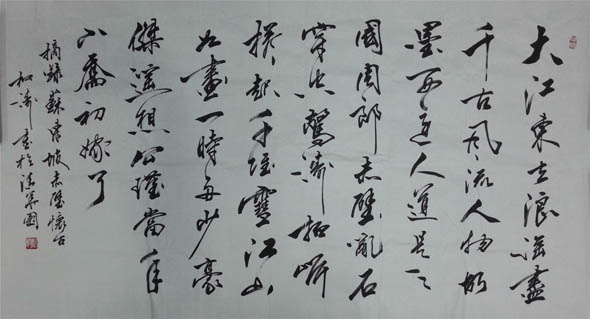 大江東去浪淘盡
千古風流人物故
壘西邊人道是三
國周郎赤壁亂石
穿空驚濤拍岸
捲起千堆雪江山
如畫一時多少豪
傑遙想公瑾當年
小喬初嫁了
摘錄蘇東坡赤壁懷古
松濤書於